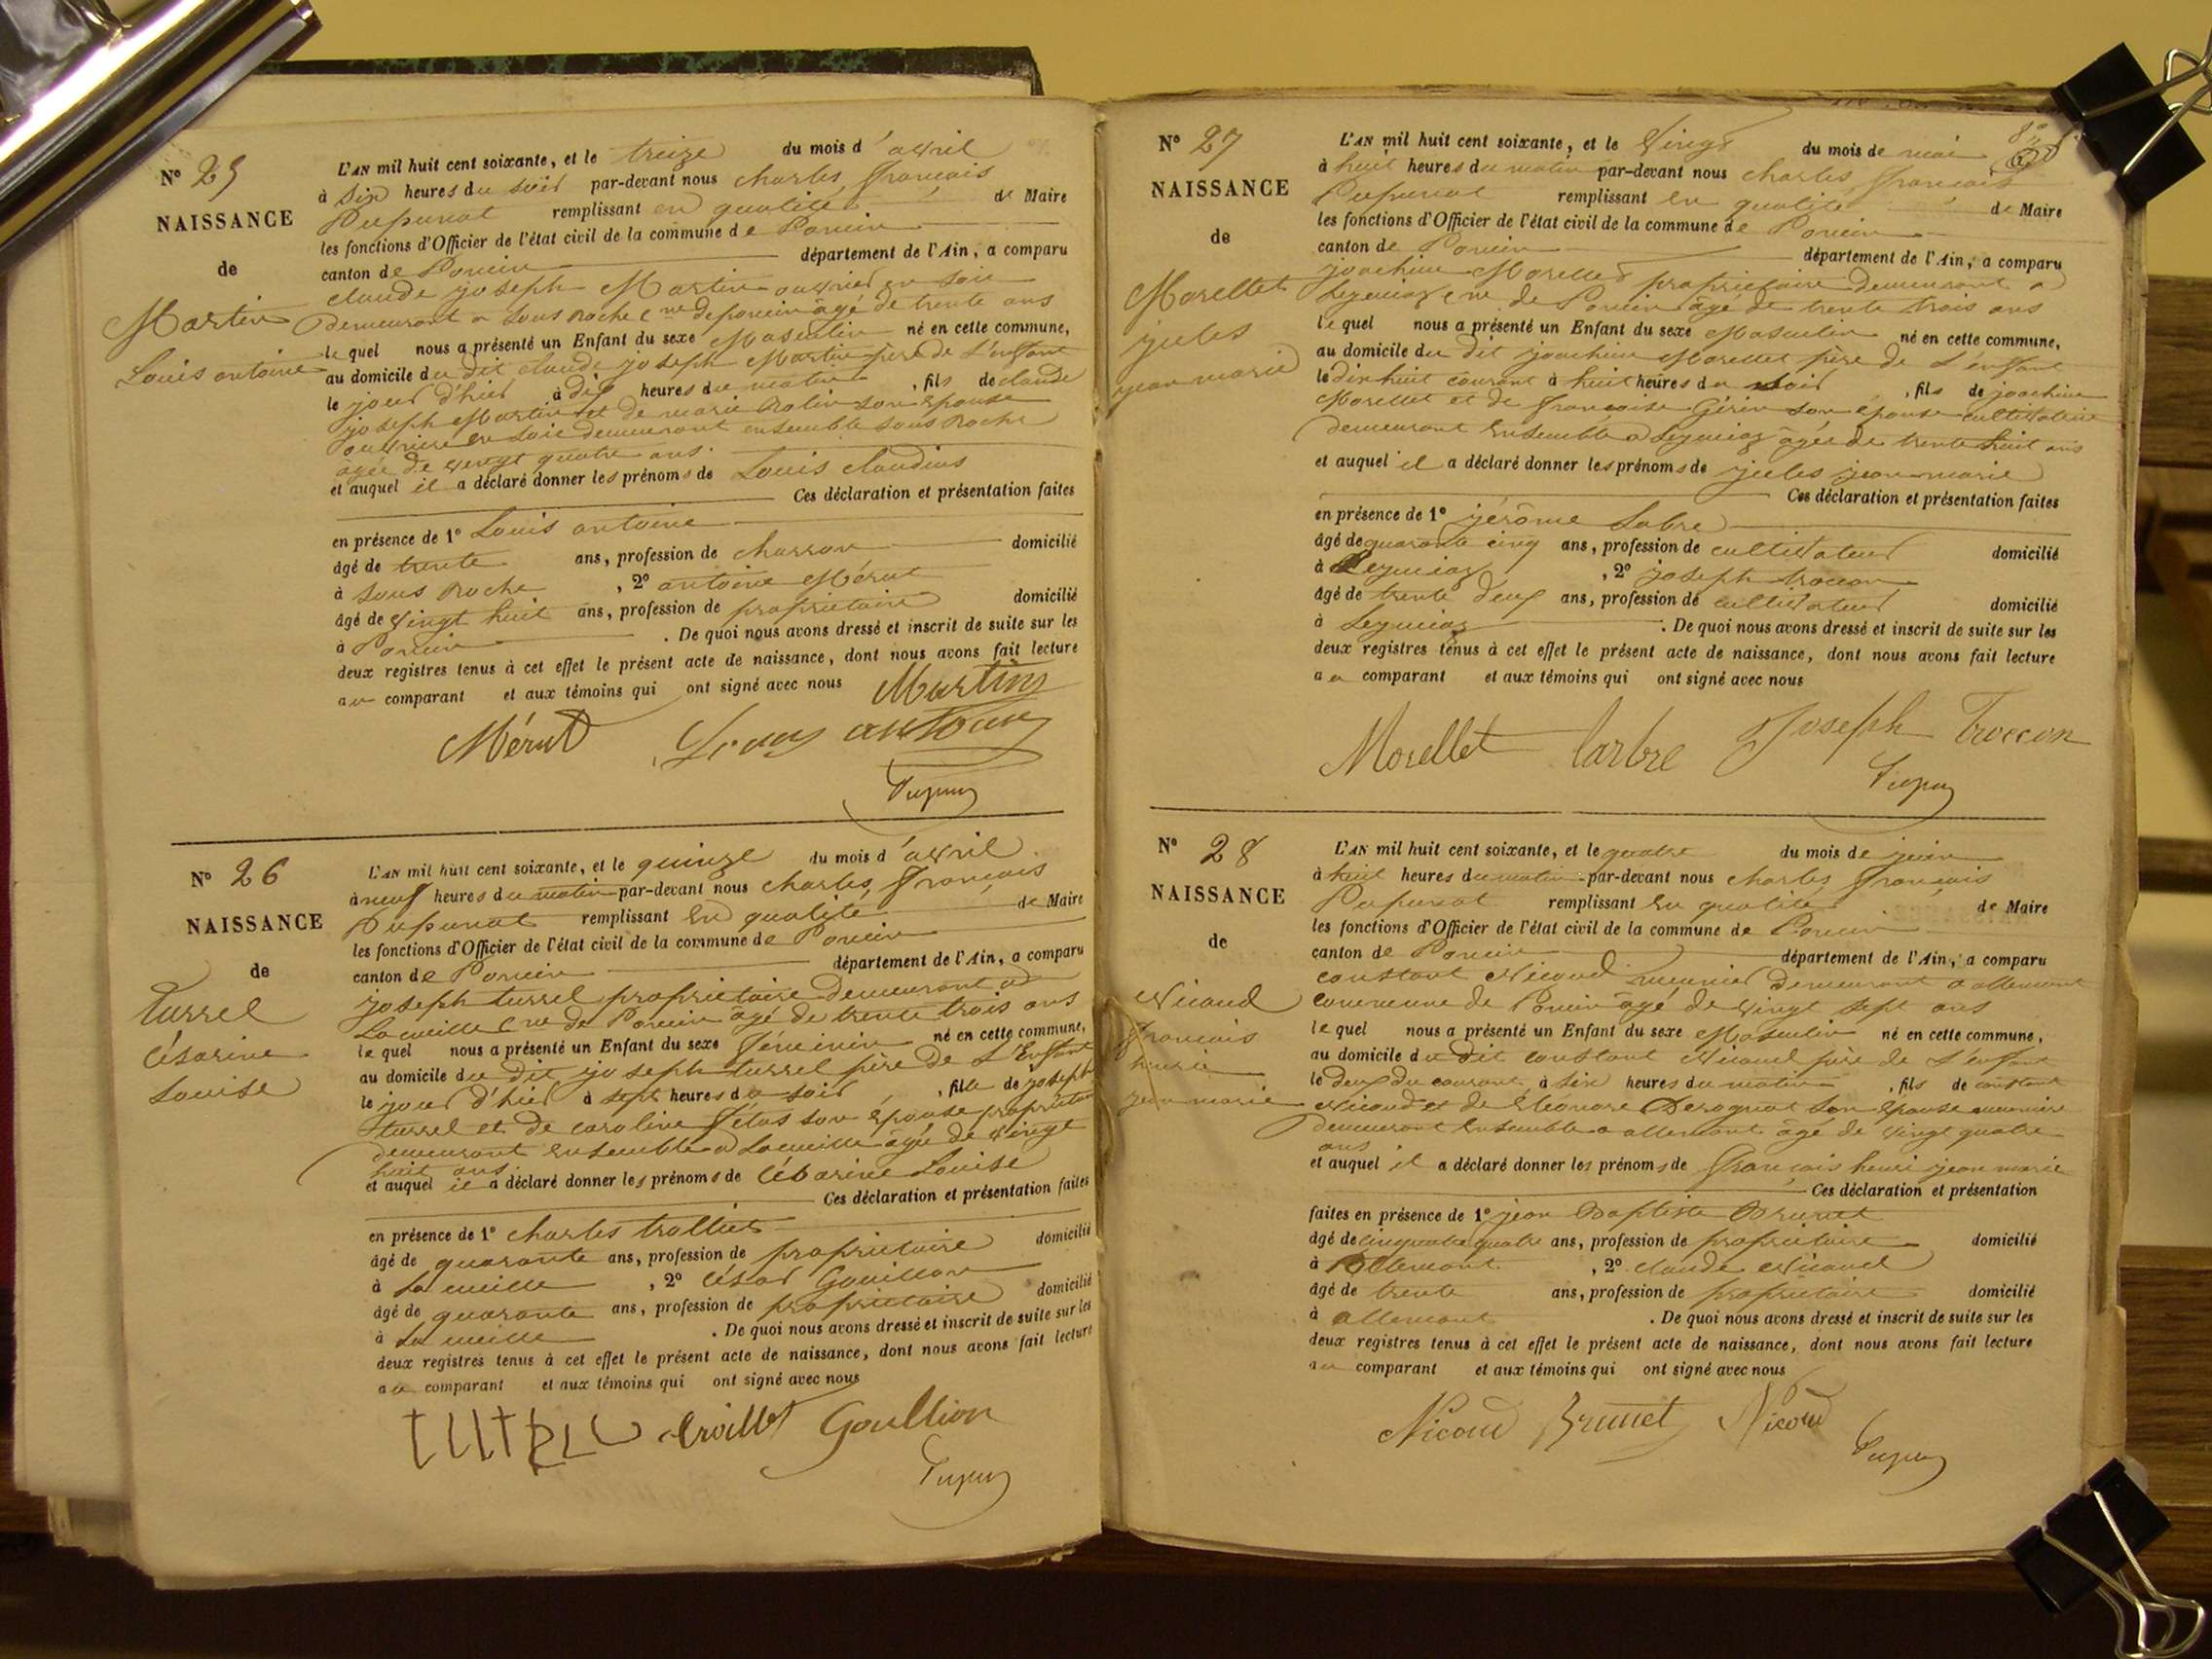 N° 25
NAISSANCE
de
Martin
Louis antoine
L'AN mil huit cent soixante, et le treize du mois d'avril
à six heures du soir par-devant nous charles, français
Pupunat remplissant en qualité de Maire
les fonctions d'Officier de l'état civil de la commune de Poncin
canton de Poncin département de l'Ain, a comparu
claude joseph Martin ouvrier en soie
demeurant a sous roche cne de poncin âgé de trente ans
lequel nous a présenté un Enfant du sexe Masculin né en cette commune,
au domicile du dit claude joseph Martin père de L'enfant
le jour d'hier à dix heures du matin, fils de claude
joseph Martin et de marie son épouse
ouvrière en soie demeurant ensemble sous Roche
agée de vingt quatre ans.
et auquel il a déclaré donner les prénoms de Louis claudius
Ces déclaration et présentation faites
en présence de 1° Louis antoine
âgé de trente ans, profession de charron domicilié
à sous Roche, 2° antoine Mérut
âgé de vingt huit ans, profession de propriétaire domicilié
à Poncin. De quoi nous avons dressé et inscrit de suite sur les
deux registres tenus à cet effet le présent acte de naissance, dont nous avons fait lecture
au comparant et aux témoins qui ont signé avec nous Martin
Mérut Louis antoine
N° 26
NAISSANCE
de
turrel
Césarine
Louise
L'AN mil huit cent soixante, et le quinze du mois d'avril
à neuf heures du matin par-devant nous charles, français
Pupunat remplissant en qualité de Maire
les fonctions d'Officier de l'état civil de la commune de Poncin
canton de Poncin département de l'Ain, a comparu
joseph turrel propriétaire demeurant a
La cueille cne de Poncin âgé de trente trois ans
lequel nous a présenté un Enfant du sexe féminin né en cette commune,
au domicile du dit joseph turrel père de L'Enfant
le jour d'hier à sept heures du soir, fille de joseph
turrel et de caroline son épouse
demeurant ensemble a Lacueille âgée de vingt
huit ans.
et auquel il a déclaré donner les prénoms de Césarine Louise
Ces déclaration et présentation faites
en présence de 1° charles trolliet
âgé de quarante ans, profession de propriétaire domicilié
à La cueille, 2° César Gouillon
âgé de quarante ans, profession de propriétaire domicilié
à La cueille. De quoi nous avons dressé et inscrit de suite sur les
deux registres tenus à cet effet le présent acte de naissance, dont nous avons fait lecture
au comparant et aux témoins qui ont signé avec nous
Goullion
N° 27
NAISSANCE
de
Morellet
jules
jean marie
L'AN mil huit cent soixante, et le vingt du mois de mai
à huit heures du matin par-devant nous charles, français
Pupunat remplissant en qualité de Maire
les fonctions d'Officier de l'état civil de la commune de Poncin
canton de Poncin département de l'Ain, a comparu
joachim Morellet propriétaire demeurant a
Leymiaz cne de Poncin âgé de trente trois ans
lequel nous a présenté un Enfant du sexe Masculin né en cette commune,
au domicile du dit joachim Morellet père de L'enfant
le dix huit courant à huit heures du soir, fils de joachim
Morellet et de françoise Gérin son épouse cultivatrice
demeurant ensemble a Leymiaz âgée de trente huit ans
et auquel il a déclaré donner les prénoms de jules jean marie
Ces déclaration et présentation faites
en présence de 1° jérôme Labre
âgé de quarante cinq ans, profession de cultivateur domicilié
à Leymiaz, 2° joseph trocon
âgé de trente deux ans, profession de cultivateur domicilié
à Leymiaz. De quoi nous avons dressé et inscrit de suite sur les
deux registres tenus à cet effet le présent acte de naissance, dont nous avons fait lecture
au comparant et aux témoins qui ont signé avec nous
Morellet larbre Joseph Troccon
N° 28
NAISSANCE
de
Nicoud
français
henri
jean marie
L'AN mil huit cent soixante, et le quatre du mois de juin
à huit heures du matin par-devant nous charles français
Pupunat remplissant en qualité de Maire
les fonctions d'Officier de l'état civil de la commune de Poncin
canton de Poncin département de l'Ain, a comparu
constant Nicoud meunier demeurant a allemont
commune de Poncin âgé de vingt sept ans
lequel nous a présenté un Enfant du sexe Masculin né en cette commune,
au domicile du dit constant Nicoud père de L'enfant
le deux du courant à six heures du matin, fils de constant
Nicoud et de Eléonore Derognat son épouse
demeurant ensemble a allemont âgé de vingt quatre
ans
et auquel il a déclaré donner les prénoms de français henri jean marie
Ces déclaration et présentation
faites en présence de 1° jean Baptiste Brunet
âgé de cinquante quatre ans, profession de propriétaire domicilié
à Allemont, 2° claude Nicoud
âgé de trente ans, profession de propriétaire domicilié
à allemont. De quoi nous avons dressé et inscrit de suite sur les
deux registres tenus à cet effet le présent acte de naissance, dont nous avons fait lecture
au comparant et aux témoins qui ont signé avec nous
Nicoud Brunet Nicoud